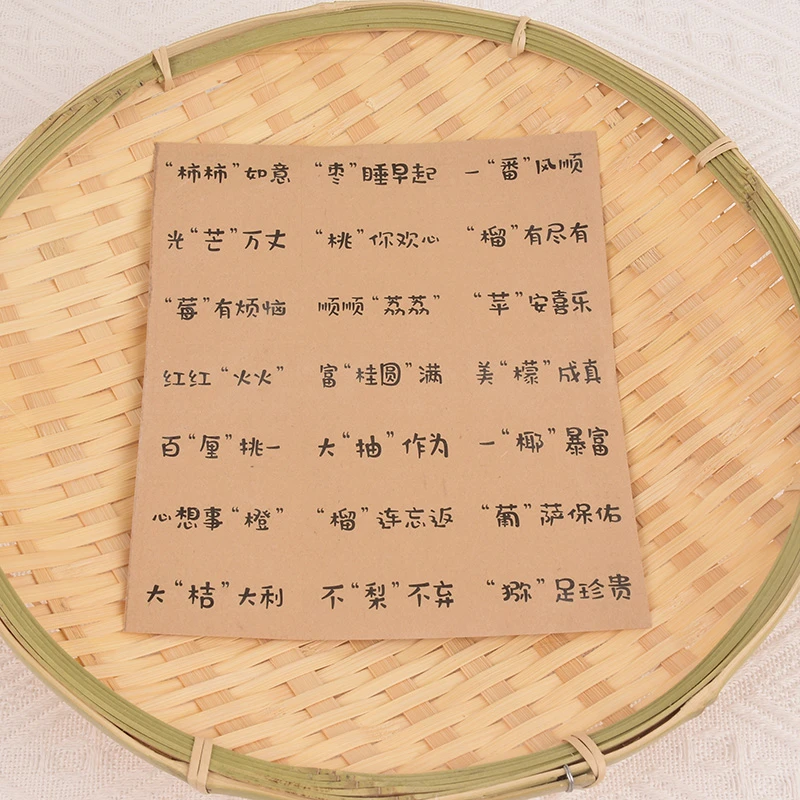 “柿柿”如意 “枣”睡早起 一“番”风顺
光“芒”万丈 “桃”你欢心 “榴”有尽有
“莓”有烦恼 顺顺“荔荔” “苹”安喜乐
红红“火火” 富“桂圆”满 美“檬”成真
百“厘”挑一 大“抽”作为 一“椰”暴富
心想事“橙” “榴”连忘返 “葡”萨保佑
大“桔”大利 不“梨”不弃 “猕”足珍贵